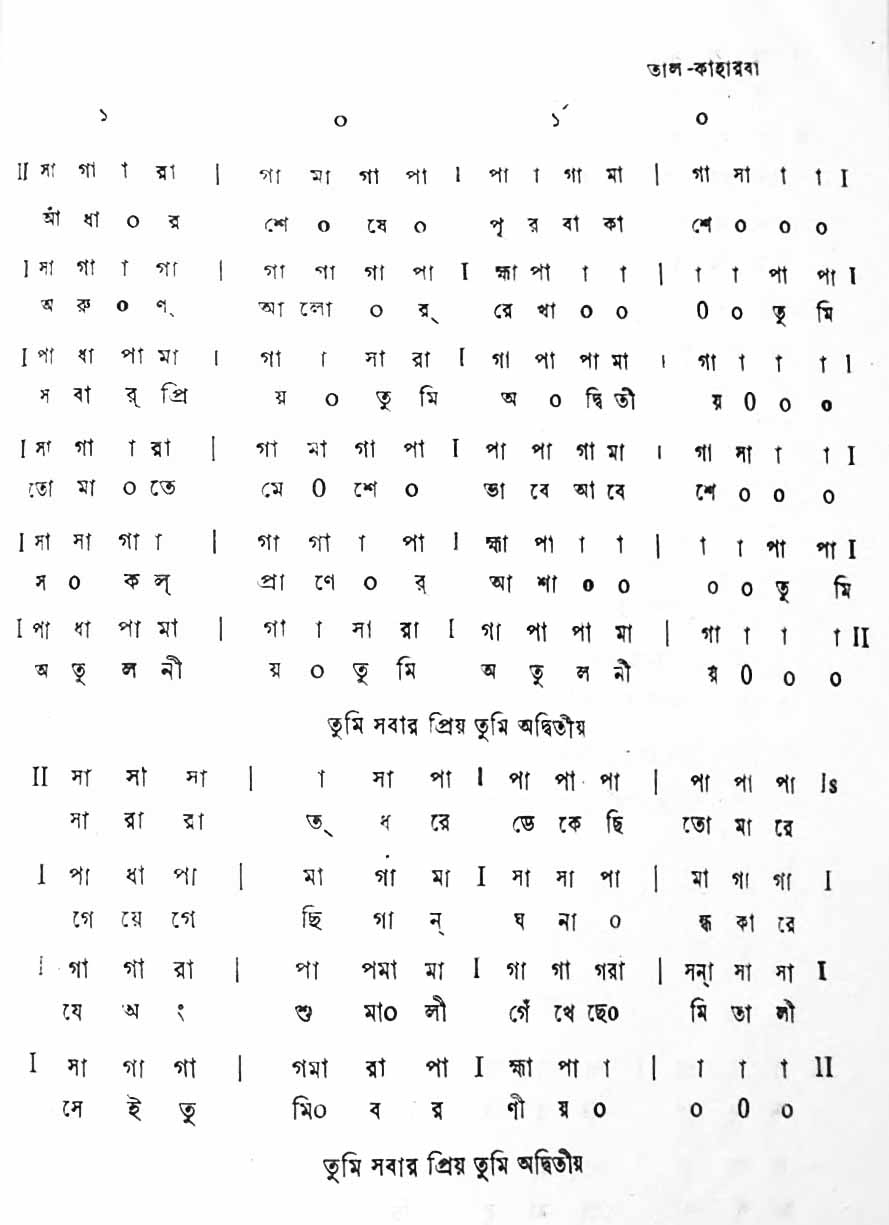 তাল -কাহারবা
১ ০ ১́ ০
II সা গা া রা | গা মা গা পা । পা া গা মা | গা সা া া I
আঁ ধা ০ র শে ০ ষে ০ পূ র বা কা শে ০ ০ ০
I সা গা া গা | গা গা গা পা I হ্মা পা া া | া া পা পা I
অ রু ০ ণ্ আ লো ০ র্ রে খা ০ ০ 0 ০ তু মি
I পা ধা পা মা । গা া সা রা I গা পা পা মা । গা া া া l
স বা র্ প্রি য় ০ তু মি অ ০ দ্বি তী য় 0 ০ ০
I সা গা া রা | গা মা গা পা I পা পা গা মা । গা সা া া I
তো মা ০ তে মে 0 শে ০ ভা বে আ বে শে ০ ০ ০
I সা সা গা া | গা গা া পা । হ্মা পা া া | া া পা পা I
স ০ ক ল্ প্রা ণে ০ র্ আ শা ০ ০ ০ ০ তু মি
I পা ধা পা মা | গা া সা রা I গা পা পা মা | গা া া া II
অ তু ল নী য় ০ তু মি অ তু ল নী য় 0 ০ ০
তুমি সবার প্রিয় তুমি অদ্বিতীয়
II সা সা সা | া সা পা । পা পা পা | পা পা পা Is
সা রা রা ত্ ধ রে ডে কে ছি তো মা রে
I পা ধা পা | মা গা মা I সা সা পা | মা গা গা I
গে য়ে গে ছি গা ন্ ঘ না ০ ন্ধ কা রে
I গা গা রা | পা পমা মা I গা গা গরা | সন্া সা সা I
যে অ ং শু মা০ লী গেঁ থে ছে০ মি তা লী
I সা গা গা | গমা রা পা I হ্মা পা া | া া া II
সে ই তু মি০ ব র ণী য় ০ ০ 0 ০
তুমি সবার প্রিয় তুমি অদ্বিতীয়